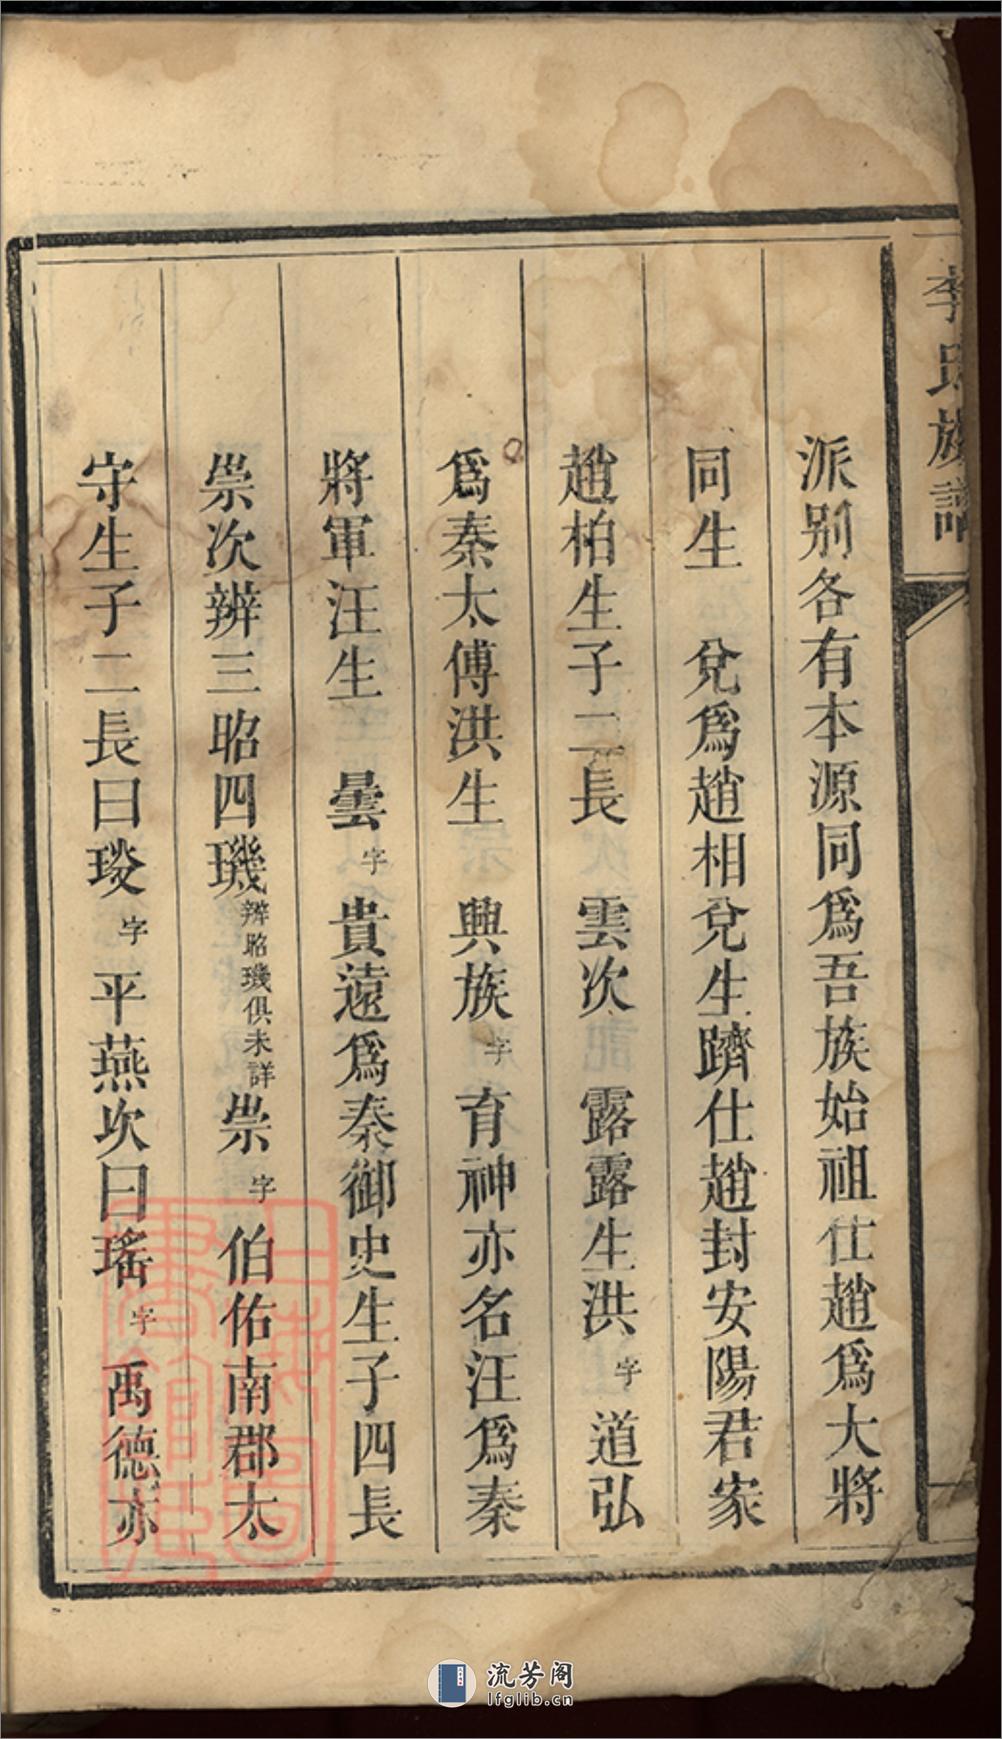 李氏族譜
派別各有本源同爲吾族始祖仕趙爲大將
同生　兌爲趙相兌生躋仕趙封安陽君家
趙柏生子二長　雲次　露露生洪字　道弘
爲秦太傅洪生　興族字　育神亦名汪爲秦
將軍汪生　曇字　貴遠爲秦御史生子四長
崇次辨三昭四璣辨昭璣俱未詳崇字　伯佑南郡太
守生子二長曰琰字　平燕次曰瑤字　禹德亦
一
流芳阁
lfglib.cn